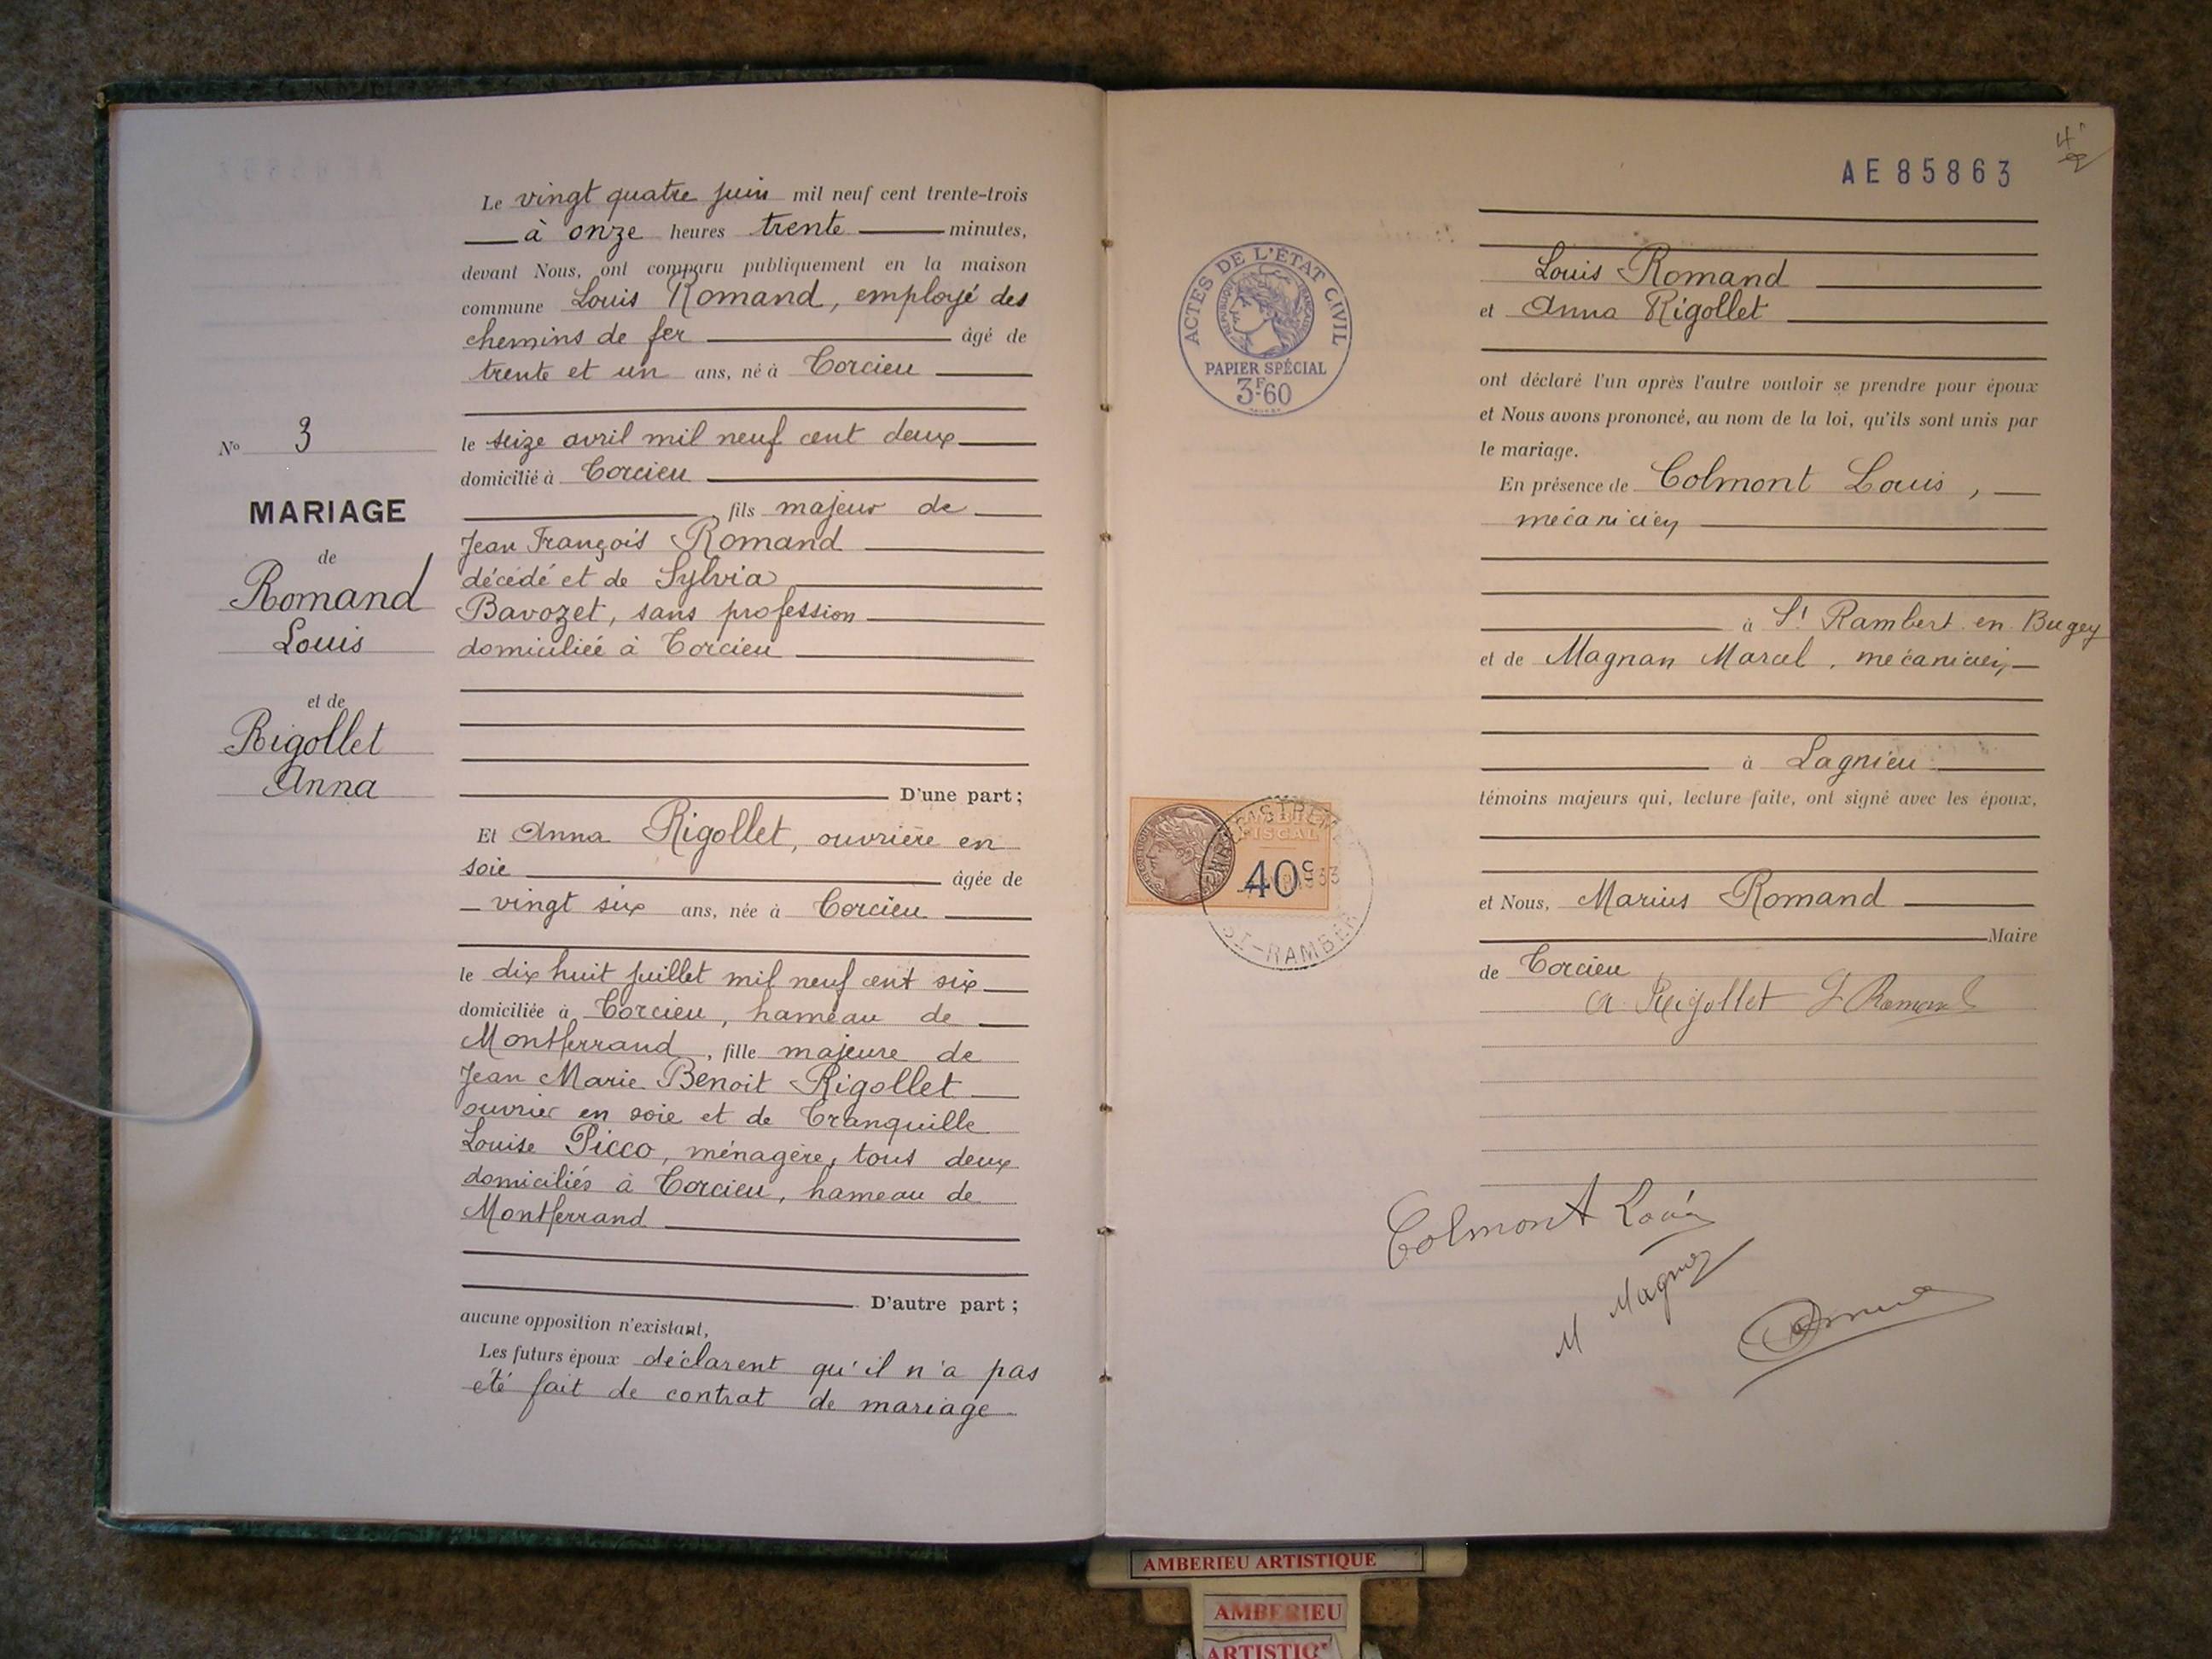 N° 3
MARIAGE
de
Romand
Louis
et de
Rigollet
Anna
Le vingt quatre juin mil neuf cent trente-trois
à onze heures trente minutes,
devant Nous, ont comparu publiquement en la maison
commune Louis Romand, employé des
chemins de fer âgé de
trente et un ans, né à Torcieu
le seize avril mil neuf cent deux
domicilié à Torcieu
, fils majeur de
Jean François Romand
décédé et de Sylvia
Bavozet, sans profession
domiciliée à Torcieu
D'une part ;
Et Anna Rigollet, ouvrière en
soie âgée de
vingt six ans, née à Torcieu
le dix huit juillet mil neuf cent six
domiciliée à Torcieu, hameau de
Montferrand, fille majeure de
Jean Marie Benoit Rigollet
ouvrier en soie et de Tranquille
Louise Picco, ménagère, tous deux
domiciliés à Torcieu, hameau de
Montferrand
D'autre part ;
aucune opposition n'existant,
Les futurs époux déclarent qu'il n'a pas
été fait de contrat de mariage
AE 85863
ACTES DE L'ÉTAT CIVIL
RÉPUBLIQUE FRANÇAISE
PAPIER SPÉCIAL
3F.60
Louis Romand
et Anna Rigollet
ont déclaré l'un après l'autre vouloir se prendre pour époux
et Nous avons prononcé, au nom de la loi, qu'ils sont unis par
le mariage.
En présence de Colmont Louis,
mécanicien
à St Rambert en Bugey
et de Magnan Marcel, mécanicien
à Lagnieu
témoins majeurs qui, lecture faite, ont signé avec les époux,
FISCAL
40c
ST-RAMBER
et Nous, Marius Romand
Maire
de Torcieu
a Rigollet L Romand
Colmont Louis
AMBERIEU ARTISTIQUE
AMBERIEU